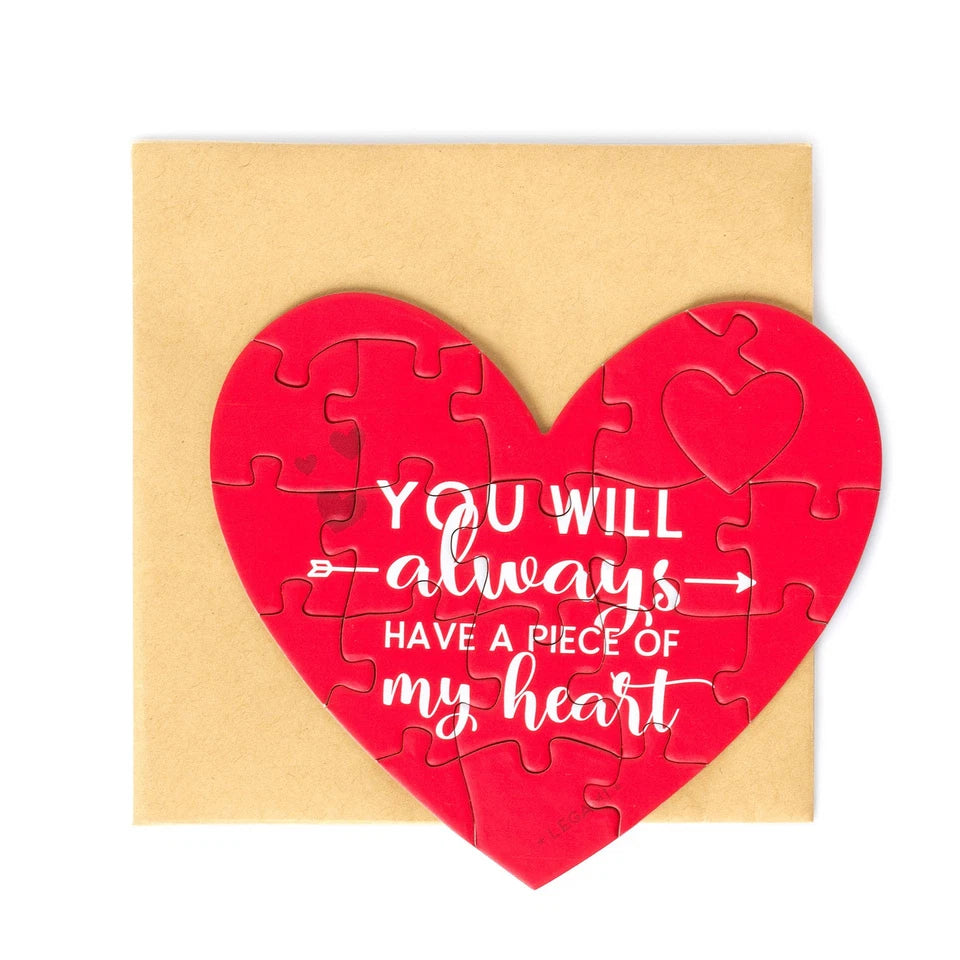 YOU WILL
always
HAVE A PIECE OF
my heart
★ LEGAMI